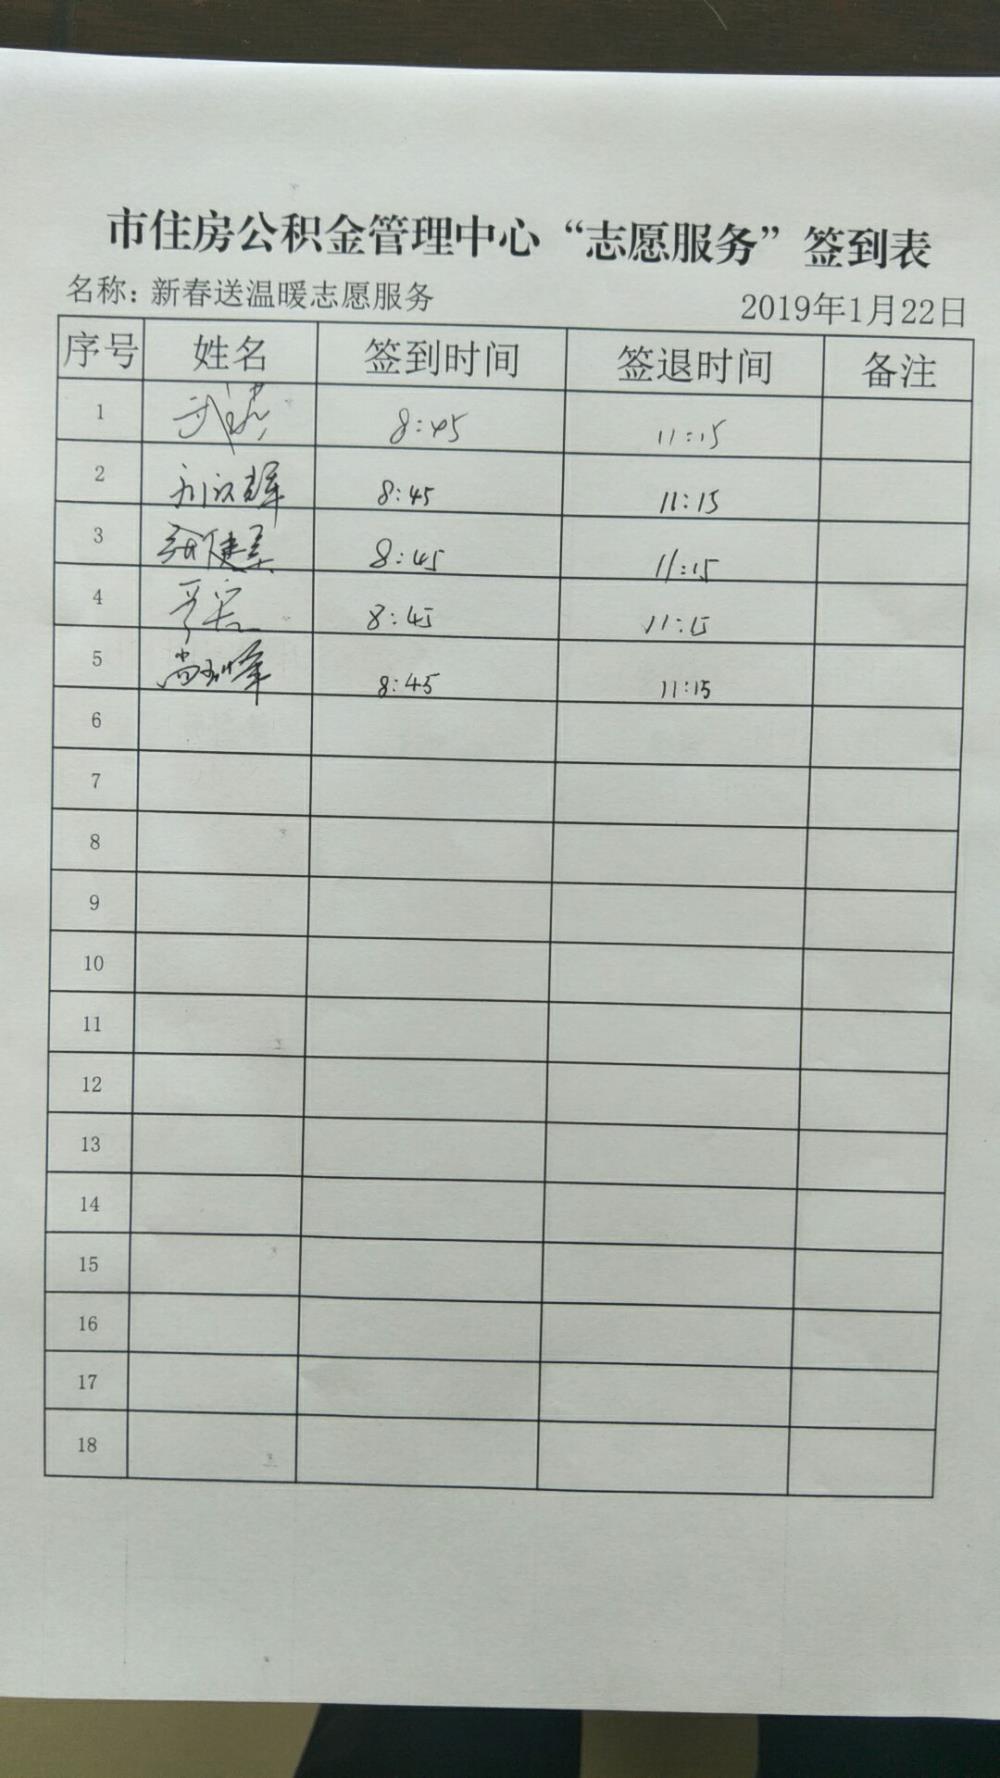 市住房公积金管理中心“志愿服务”签到表
名称：新春送温暖志愿服务 2019年1月22日
序号 姓名 签到时间 签退时间 备注
1 8:45 11:15
2 8:45 11:15
3 8:45 11:15
4 8:45 11:15
5 8:45 11:15
6
7
8
9
10
11
12
13
14
15
16
17
18